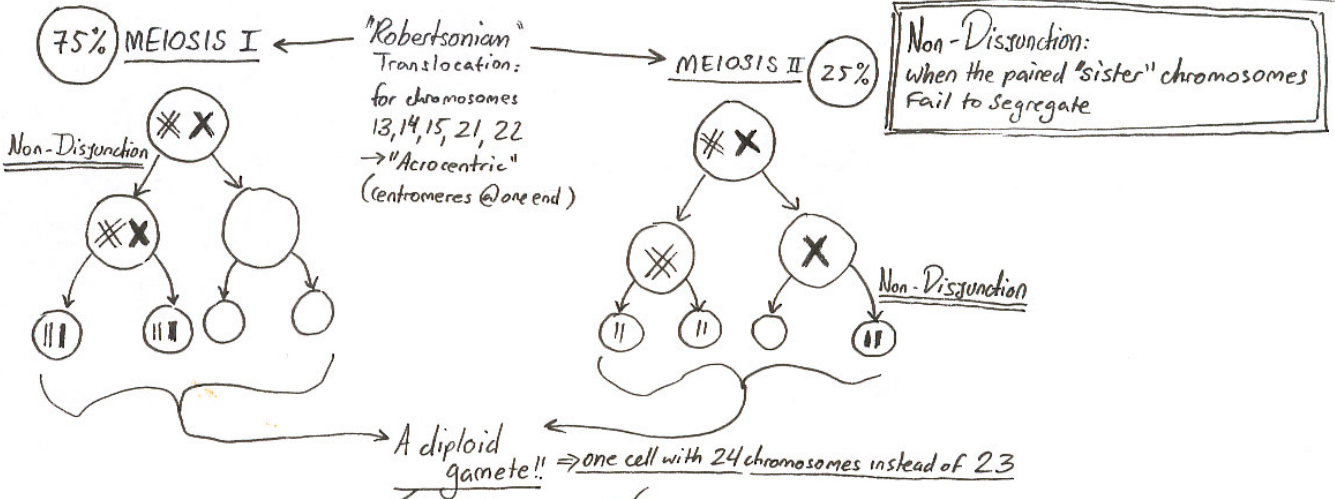 75% MEIOSIS I
"Robertsonian"
Translocation:
for chromosomes
13, 14, 15, 21, 22
→ "Acrocentric"
(centromeres @ one end)
MEIOSIS II 25%
Non-Disjunction:
when the paired "sister" chromosomes
Fail to segregate
Non-Disjunction
Non-Disjunction
A diploid
gamete!! ⇒ one cell with 24 chromosomes instead of 23